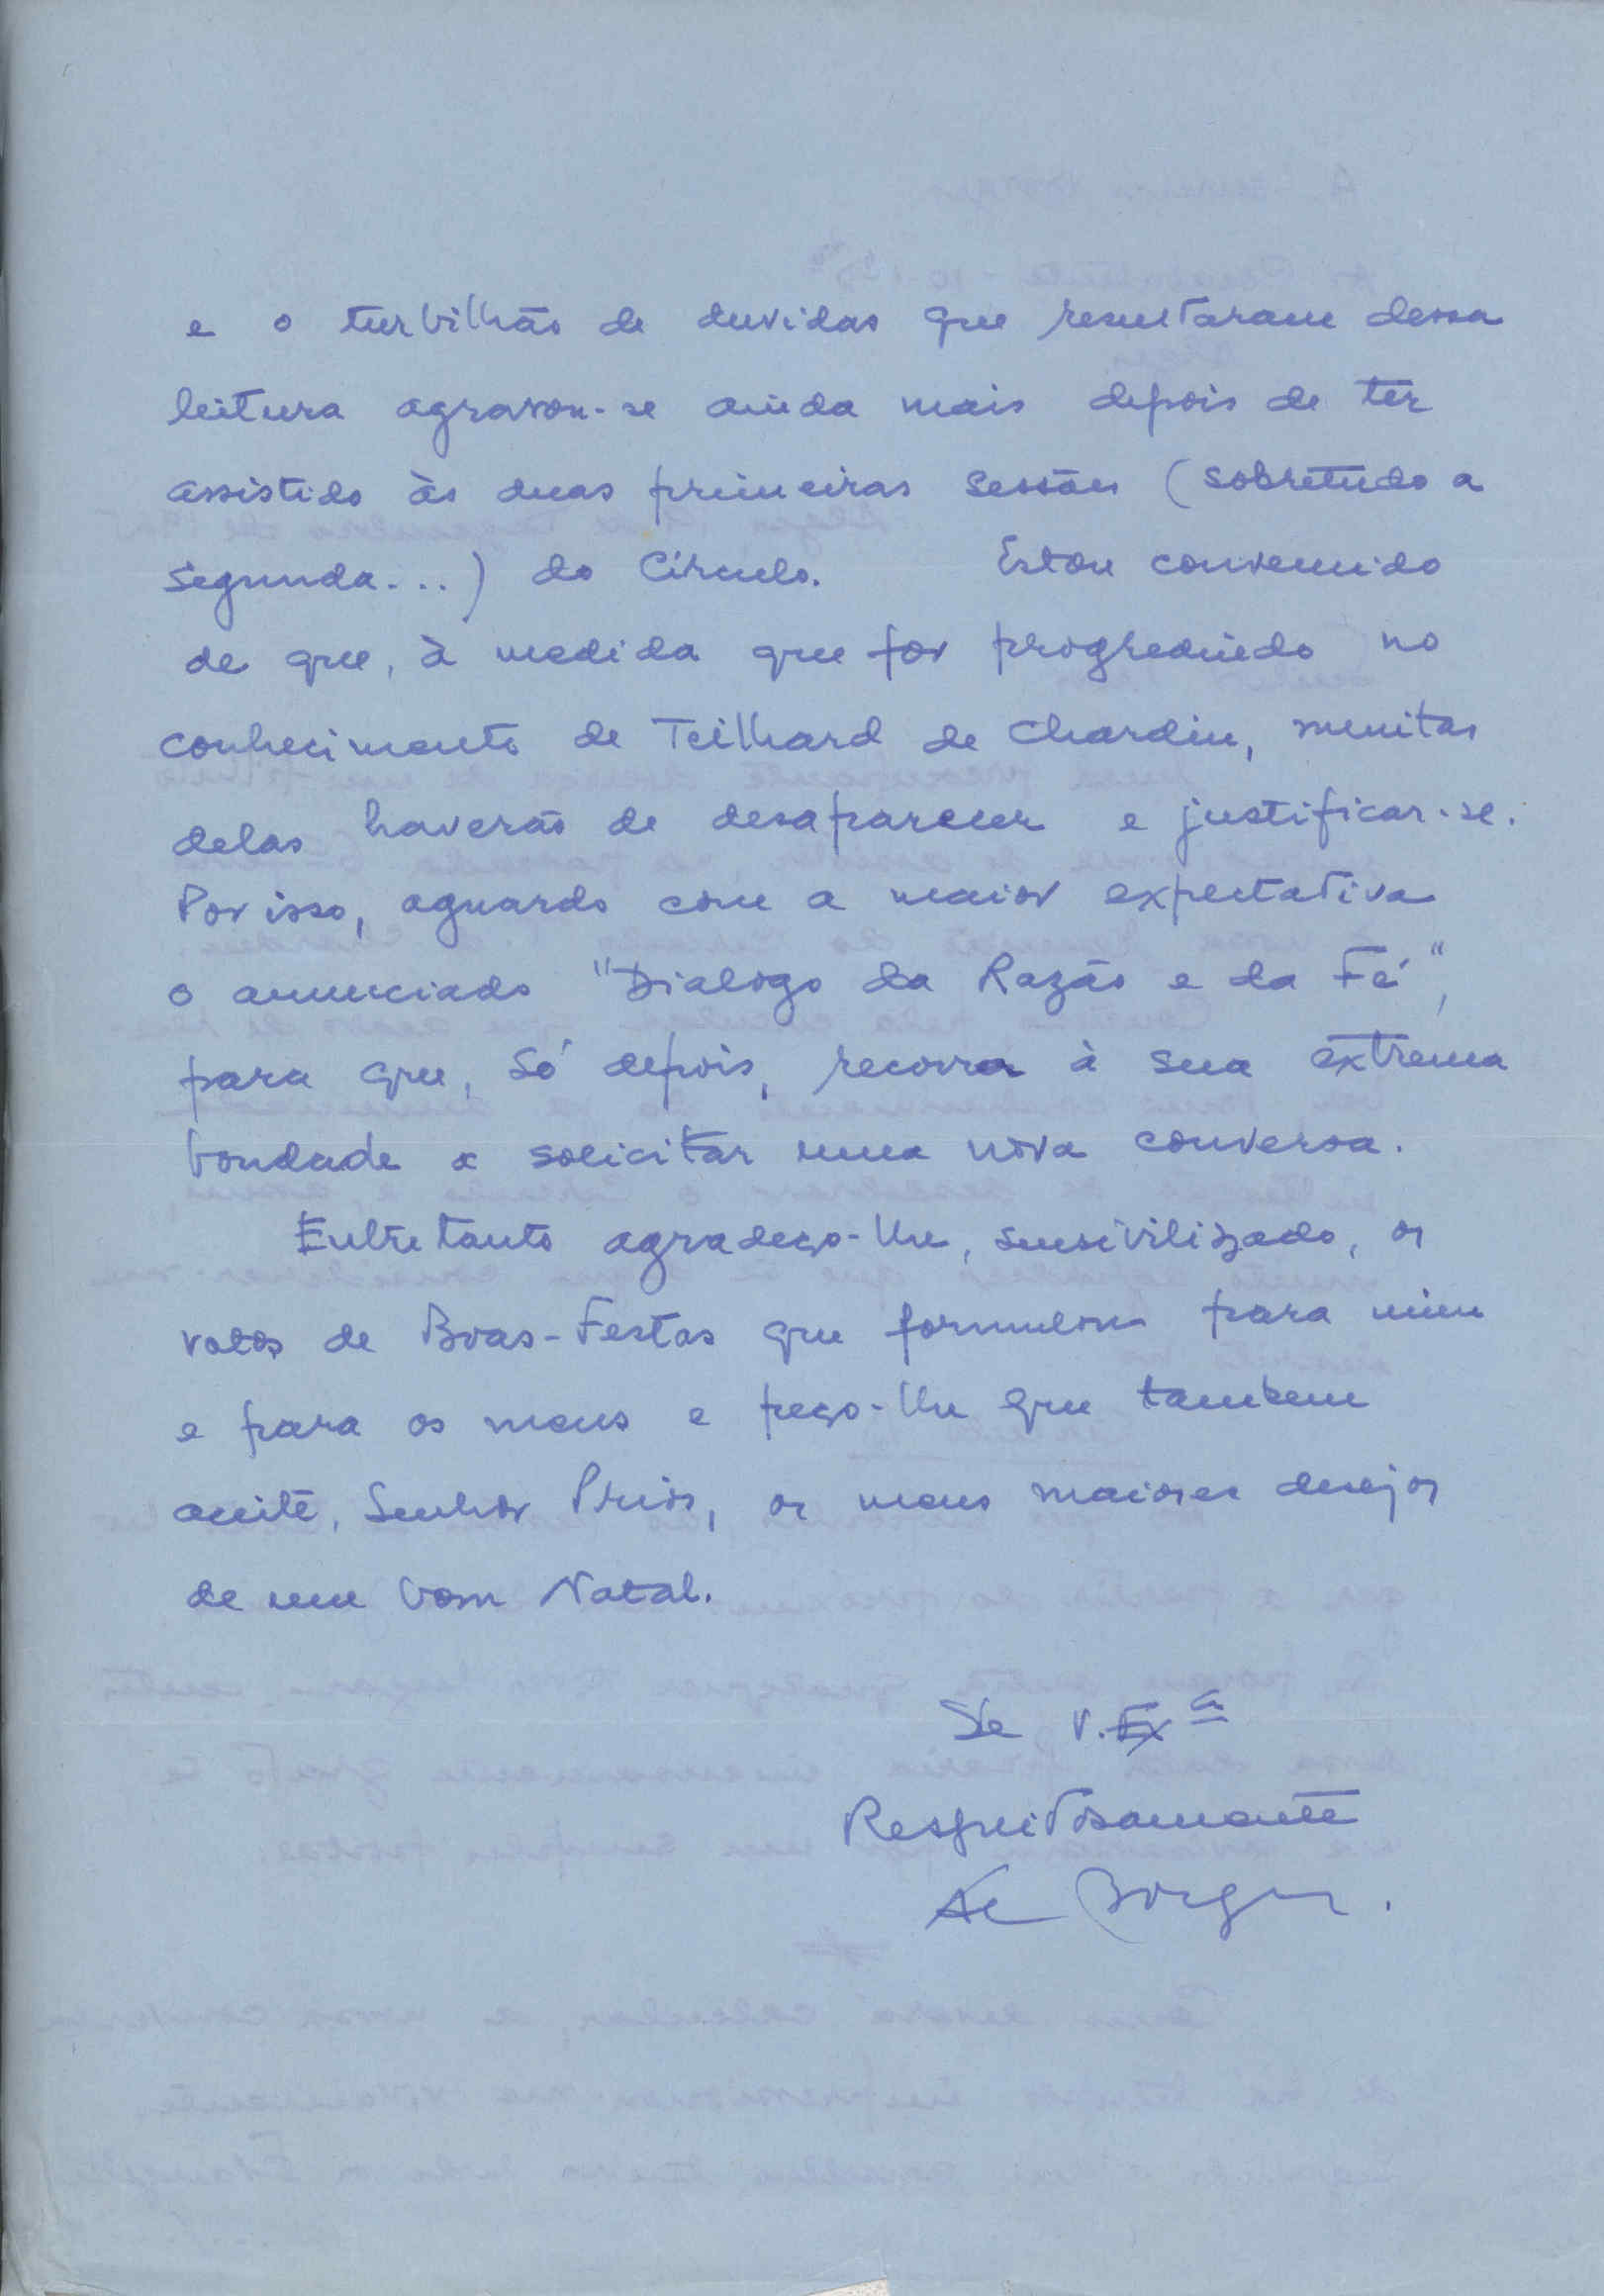 e o turbilhão de duvidas que resultaram dessa
leitura agravou-se ainda mais depois de ter
assistido às duas primeiras sessões (sobretudo a
segunda...) do Círculo. Estou convencido
de que, à medida que for progredindo no
conhecimento de Teilhard de Chardin, muitas
delas haverão de desaparecer e justificar-se.
Por isso, aguardo com a maior expectativa
o anunciado "Dialogo da Razão e da Fé",
para que, só depois, recorra à sua extrema
bondade a solicitar uma nova conversa.
Entretanto agradeço-lhe, sensibilizado, os
votos de Boas-Festas que formulou para mim
e para os meus e peço-lhe que tambem
aceite, Senhor Prior, os meus maiores desejos
de um bom Natal.
De V. Exª
Respeitosamente
Borges.